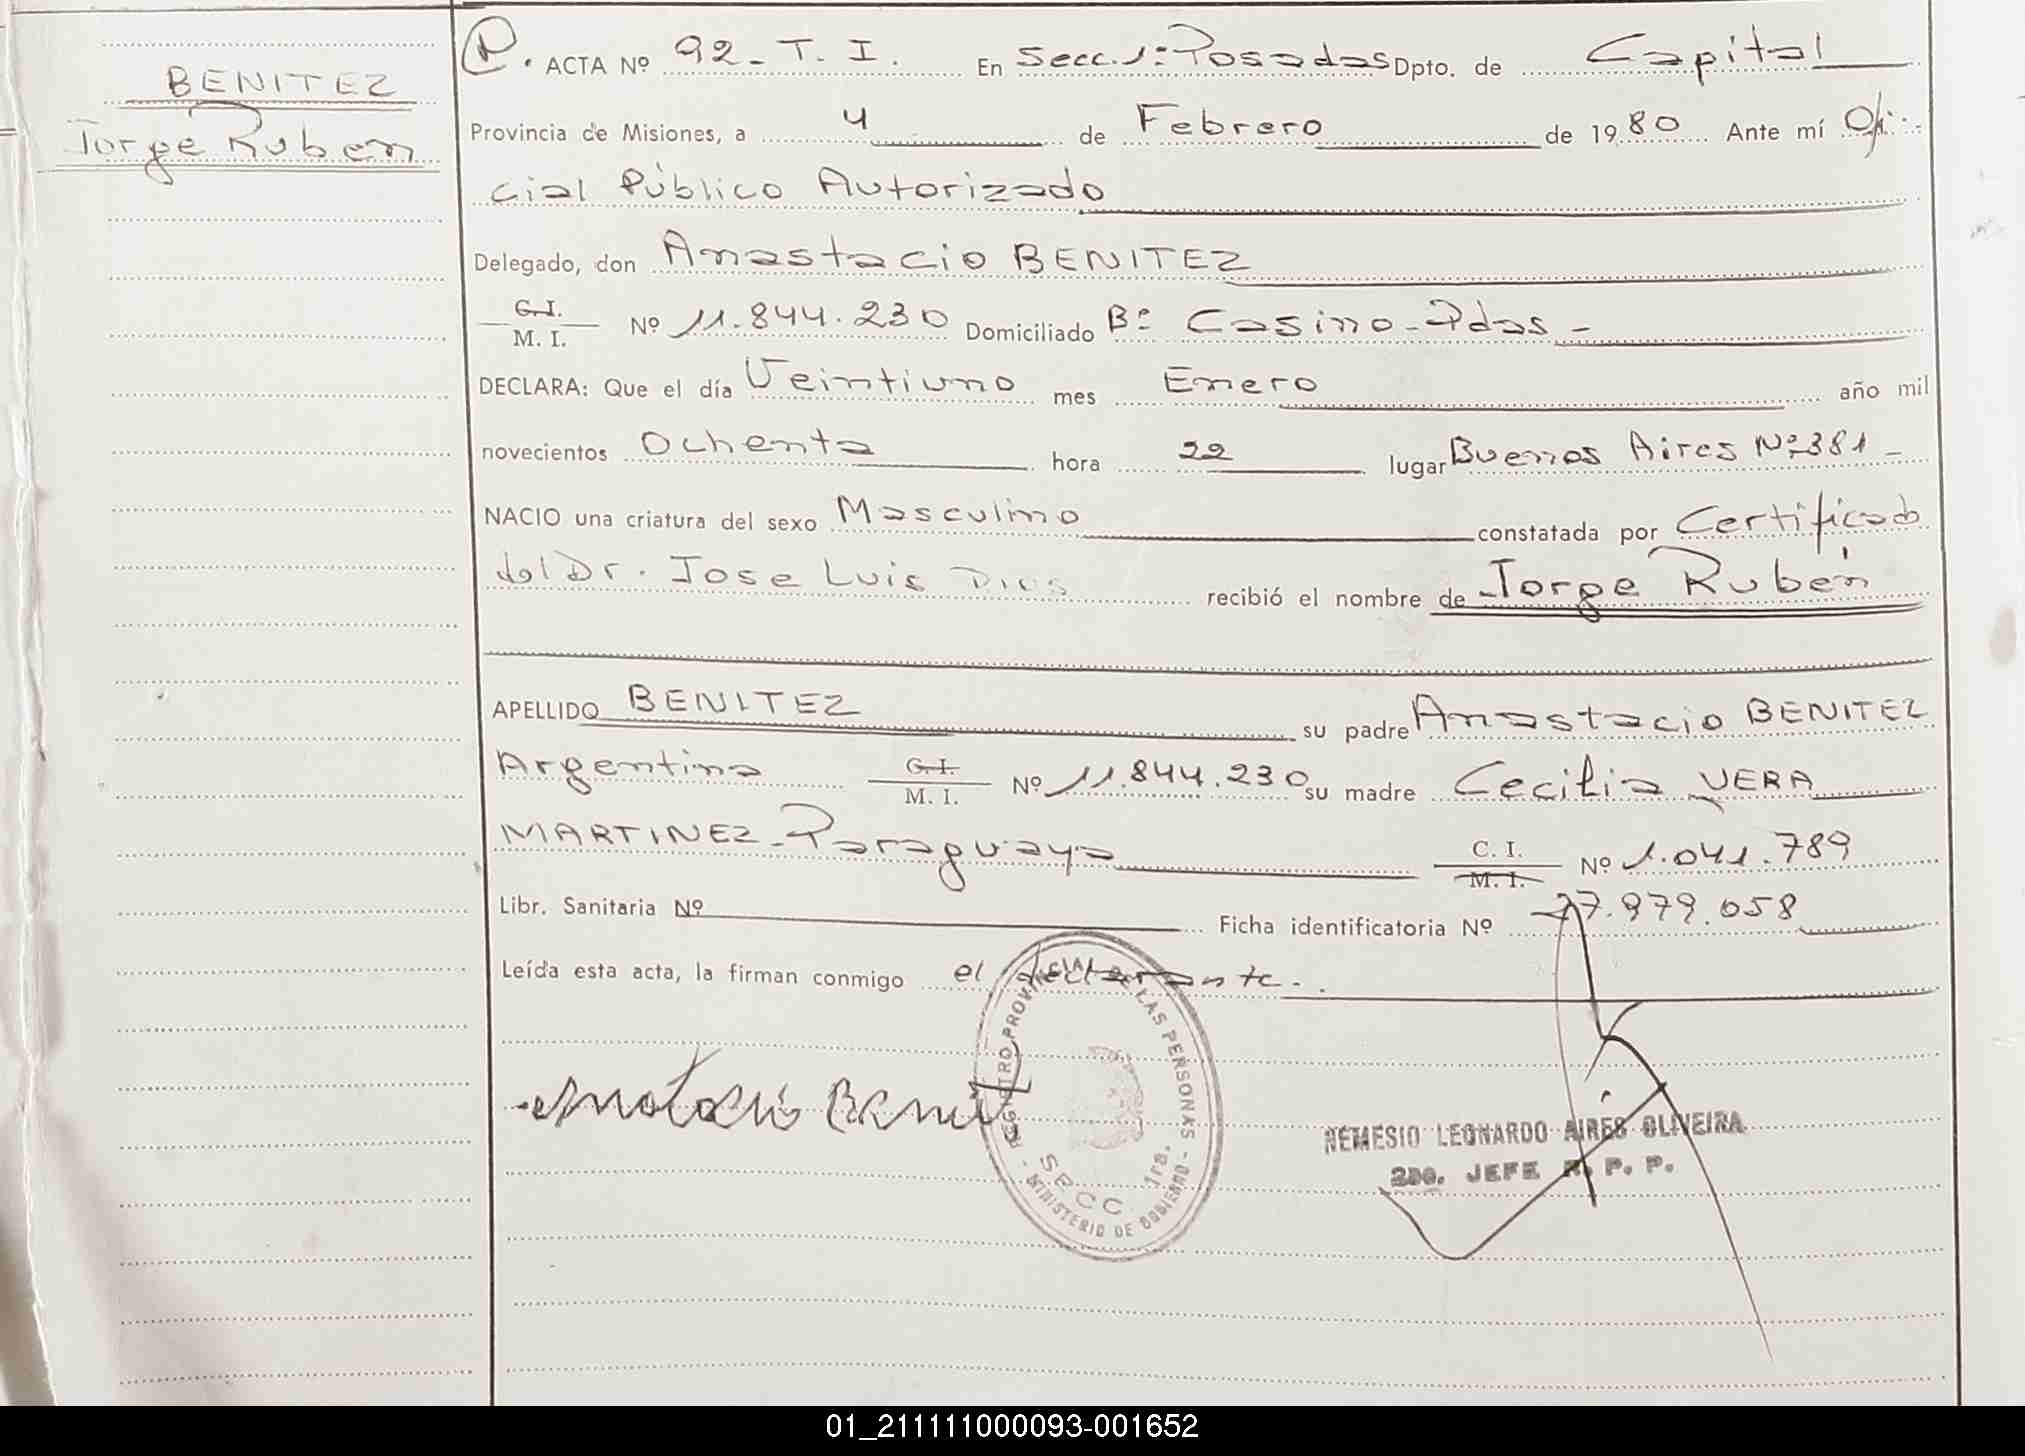 BENITEZ
Jorge Ruben
P. ACTA Nº 92-T. I. En Secc. 1ª: Posadas Dpto. de Capital
Provincia de Misiones, a 4 de Febrero de 1980 Ante mí Ofi-
cial Público Autorizado
Delegado, don Anastacio BENITEZ
C. I.
M. I. Nº 11.844.230 Domiciliado Bº Casino-Pdas-
DECLARA: Que el día Veintiuno mes Enero año mil
novecientos Ochenta hora 22 lugar Buenos Aires Nº 381-
NACIO una criatura del sexo Masculino constatada por Certificado
del Dr. Jose Luis recibió el nombre de Jorge Rubén
APELLIDO BENITEZ su padre Anastacio BENITEZ
Argentina C. I. M. I. Nº 11.844.230 su madre Cecilia VERA
MARTINEZ-Paraguaya C. I. M. I. Nº 1.041.789
Libr. Sanitaria Nº Ficha identificatoria Nº 27.979.058
Leída esta acta, la firman conmigo el declarante..
Anastacio Benitez
REGISTRO PROVINCIAL DE LAS PERSONAS
SECC. 1ra.
- MINISTERIO DE GOBIERNO -
NEMESIO LEONARDO AIRES OLIVEIRA
2DO. JEFE R. P. P.
01_211111000093-001652